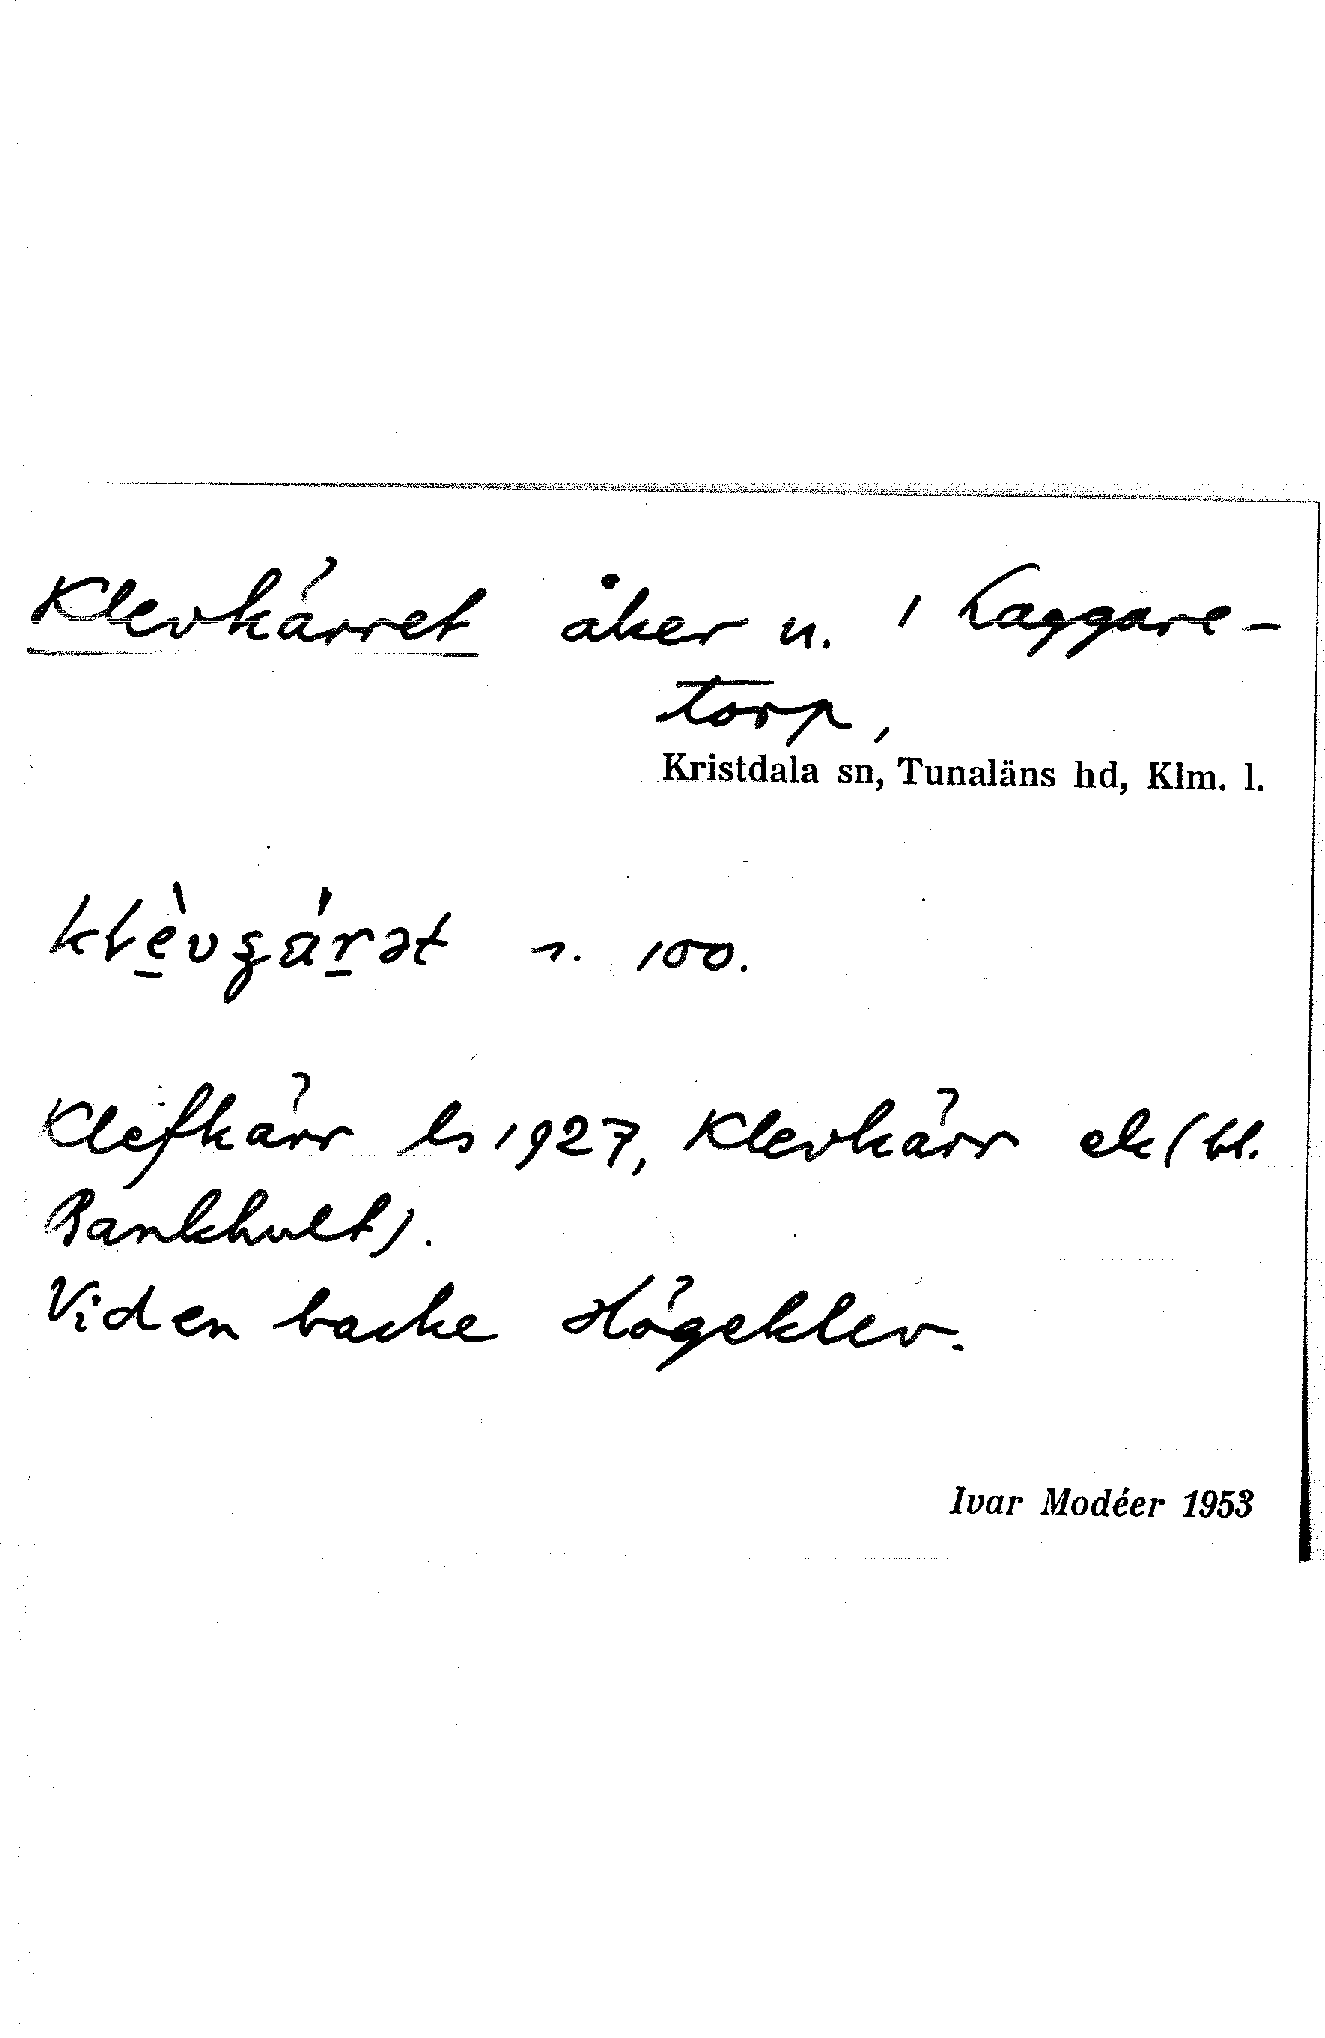 Klevkärret åker n. i Laggare-
torp,
Kristdala sn, Tunaläns hd, Klm. l.
klèvʒárət n. 100.
Klefkärr ls 1927, Klevkärr ek (bl.
Bankhult).
Vid en backe Högeklev.
Ivar Modéer 1953